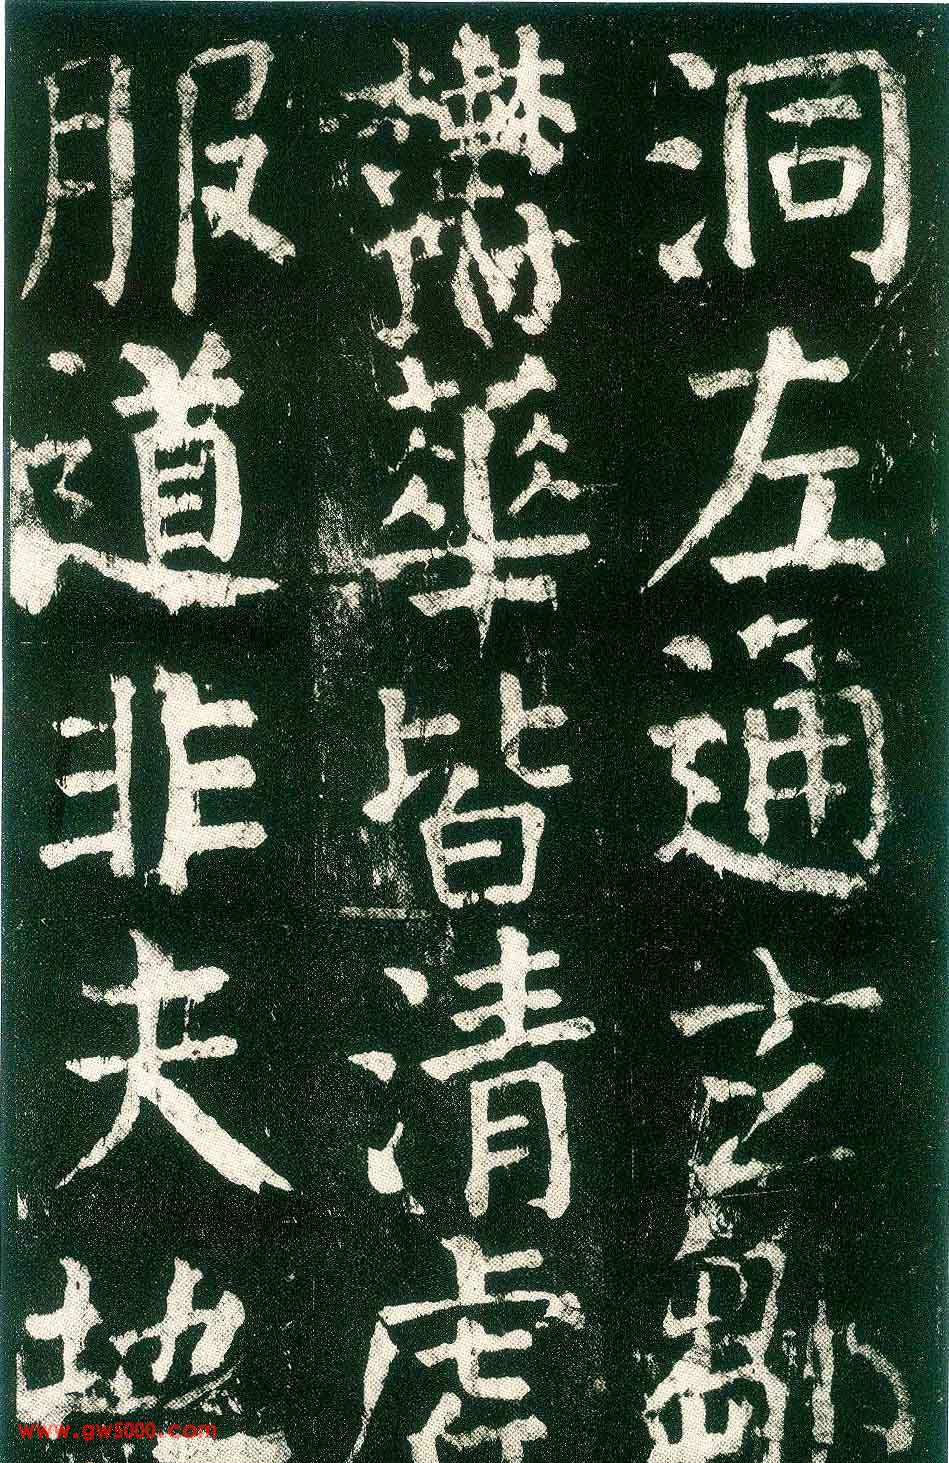 洞左通玄鄒
鬱華皆清虛
服道非夫地
www.gw5000.com